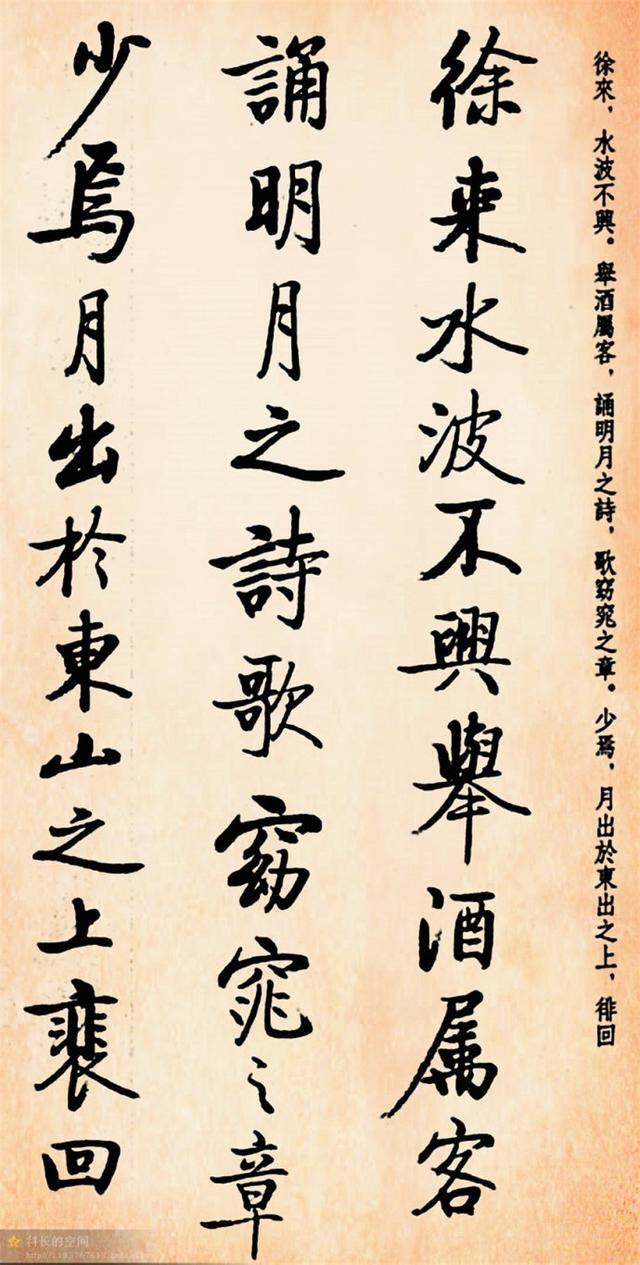 徐來，水波不興。舉酒屬客，誦明月之詩，歌窈窕之章。少焉，月出於東出之上，徘回
徐来水波不興舉酒属客
誦明月之詩歌窈窕之章
少焉月出於東山之上裴回
科长的空间